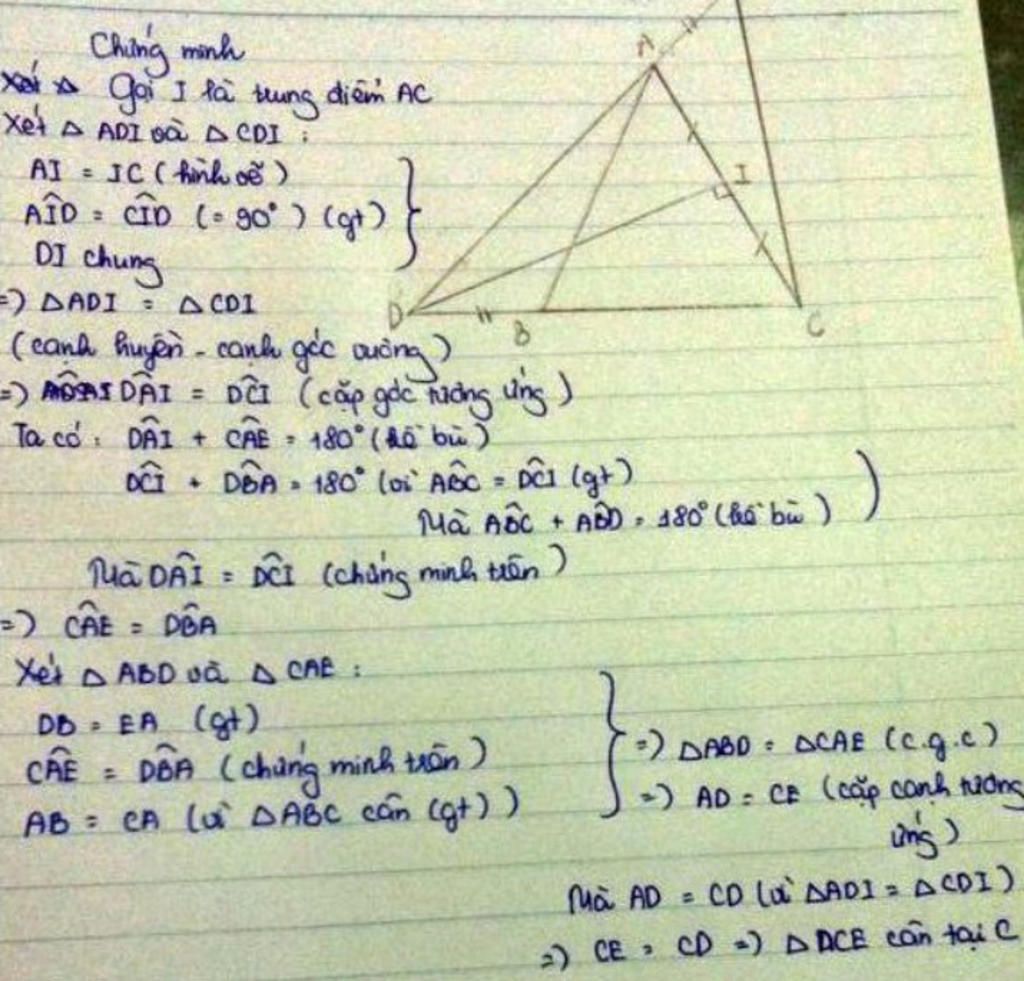 Chứng minh
Gọi I là trung điểm AC
Xét Δ ADI và Δ CDI :
AI = IC (hình vẽ)
AÎD = CÎD (= 90°) (gt)
DI chung
=) ΔADI = ΔCDI
(cạnh huyền - cạnh góc vuông)
=) DÂI = DĈI (cặp góc tương ứng)
Ta có : DÂI + CÂE = 180° (kề bù)
DĈI + DB̂A = 180° (vì AB̂C = DĈI (gt)
Mà AB̂C + AB̂D = 180° (kề bù) )
Mà DÂI = DĈI (chứng minh trên)
=) CÂE = DB̂A
Xét Δ ABD và Δ CAE :
DB = EA (gt)
CÂE = DB̂A (chứng minh trên)
AB = CA (vì ΔABC cân (gt))
=) ΔABD = ΔCAE (c.g.c)
=) AD = CE (cặp cạnh tương
ứng)
Mà AD = CD (vì ΔADI = ΔCDI)
=) CE = CD =) ΔDCE cân tại C
A
I
D
B
C